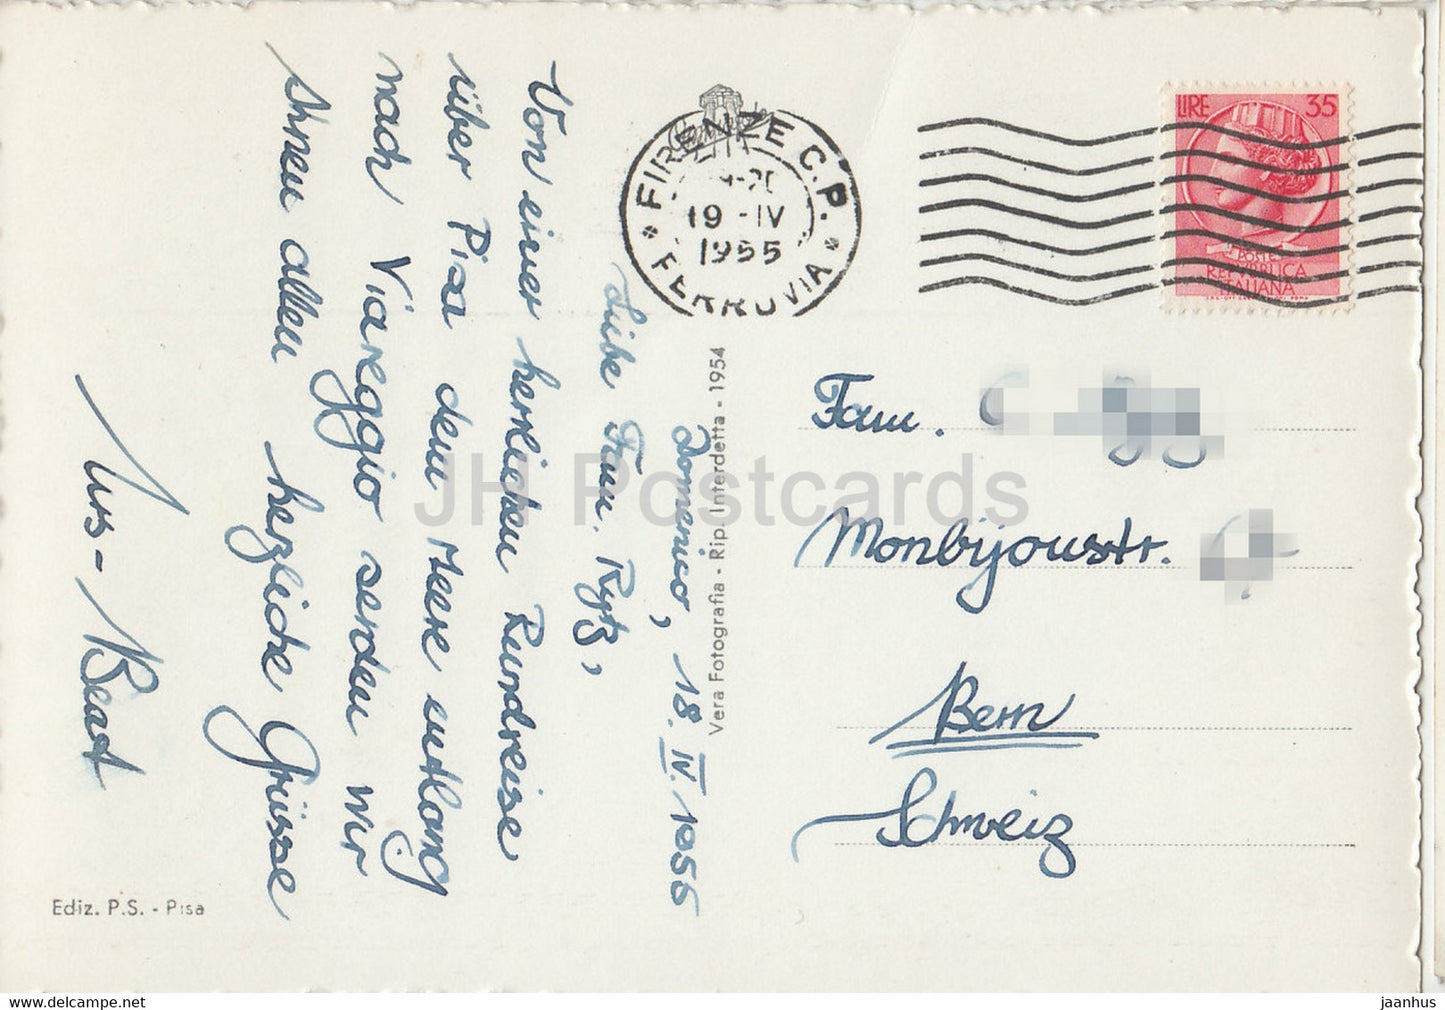 Domenico, 18. IV. 1955
Liebe Fam. Rytz,
Von einer herrlichen Rundreise
über Pisa dem Meere entlang
nach Viareggio senden wir
Ihnen allen herzliche Grüsse
Urs - Beat
FIRENZE C.P.
FERROVIA
19 - IV
1955
LIRE 35
POSTE
REPUBBLICA
ITALIANA
Vera Fotografia - Rip. Interdetta - 1954
Fam.
Monbijoustr.
Bern
Schweiz
Ediz. P.S. - Pisa
JH Postcards
https://www.jh-postcards.com
jaanhus